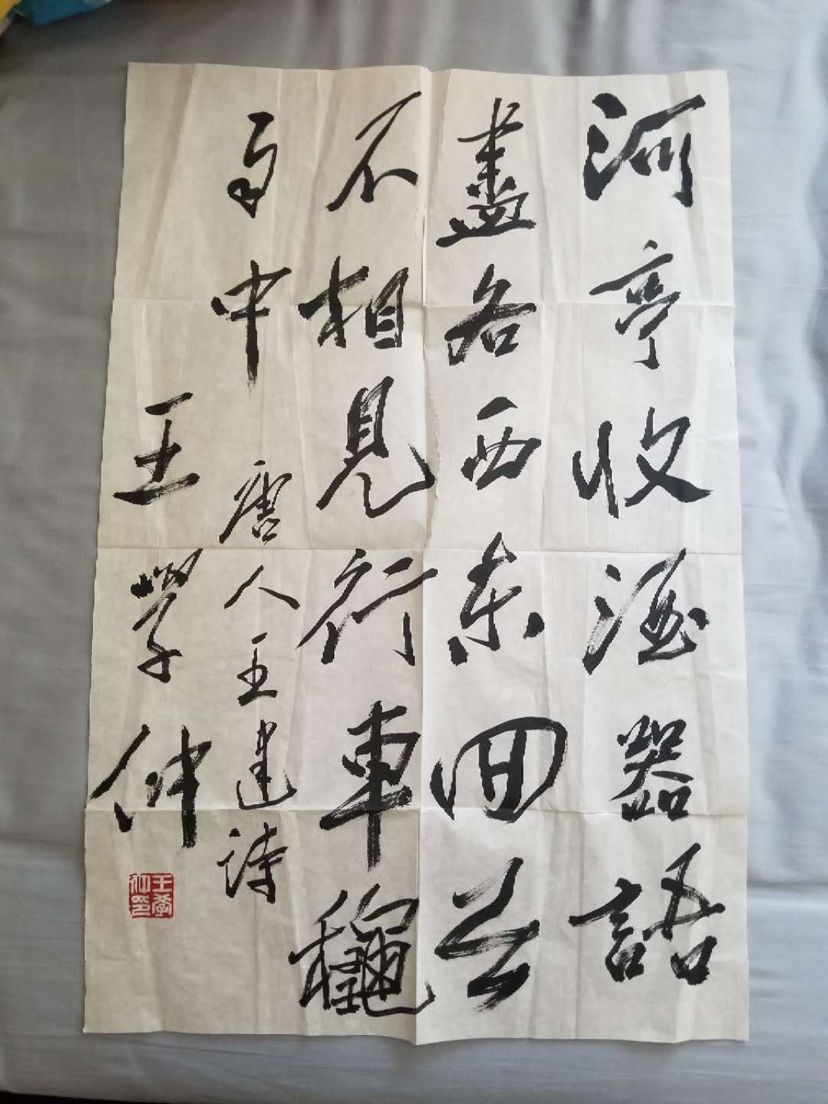 河亭收酒器語
盡各西东回首
不相見行車龝
雨中 唐人王建詩
王學仲
王學仲印